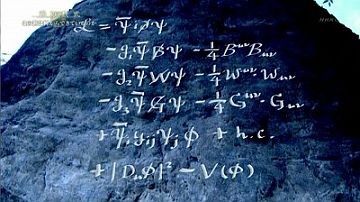 ℒ = ψ̄ i ∂̸ ψ
- g₁ ψ̄ B̸ ψ - ¼ B^μν B_μν
- g₂ ψ̄ W̸ ψ - ¼ W^μν · W_μν
- g₃ ψ̄ G̸ ψ - ¼ G^μν · G_μν
+ ψ̄ᵢ yᵢⱼ ψⱼ φ + h.c.
+ |D_μ φ|² - V(φ)